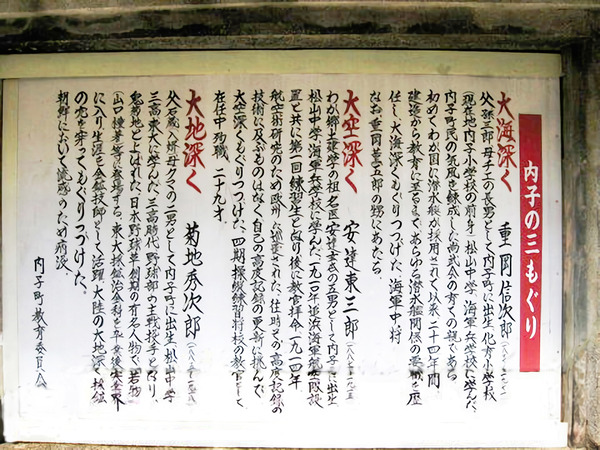 内子の三もぐり
大海深く 重岡信次郎
父孫三郎 母チエの長男として内子町に出生、化育小学校
(現在地内子小学校の前身)松山中学、海軍兵学校に学んだ、
内子町民の気風を練成した尚武会の育ての親である
初めてわが国に潜水艇が採用されて以来、二十四年間、
建造から教育に至るまで、あらゆる潜水艦関係の職を歴
任し、大海深くもぐりつづけた、海軍中将
なお重岡薫五郎の甥にあたる。
大空深く 安達東三郎
わが郷土建学の祖名医安達玄杏の五男として内子に出生
松山中学、海軍兵学校に学んだ、一九一〇年追浜海軍航空隊設
置と共に第一回練習生となり後に教官拝命、一九一四年
航空術研究のため欧州へ派遣された、往時その高度記録の
技術に及ぶものはなく自己の高度記録の更新に挑んで
大空深くもぐりつづけた、四期操縦練習将校の教官として
在任中殉職、二十九才
大地深く 菊地秀次郎
父石蔵、母クマの二男として内子町に出生、松山中学
三高東大に学んだ、三高時代、野球部の主戦投手となり、
鬼菊地とよばれた、日本野球草創期の有名人物で、君物
に入り生涯を全鉱技師として活躍、大陸の大地深く採鉱
の穴を穿ってもぐりつづけた。
朝鮮において流感のため病没、
内子町教育委員会